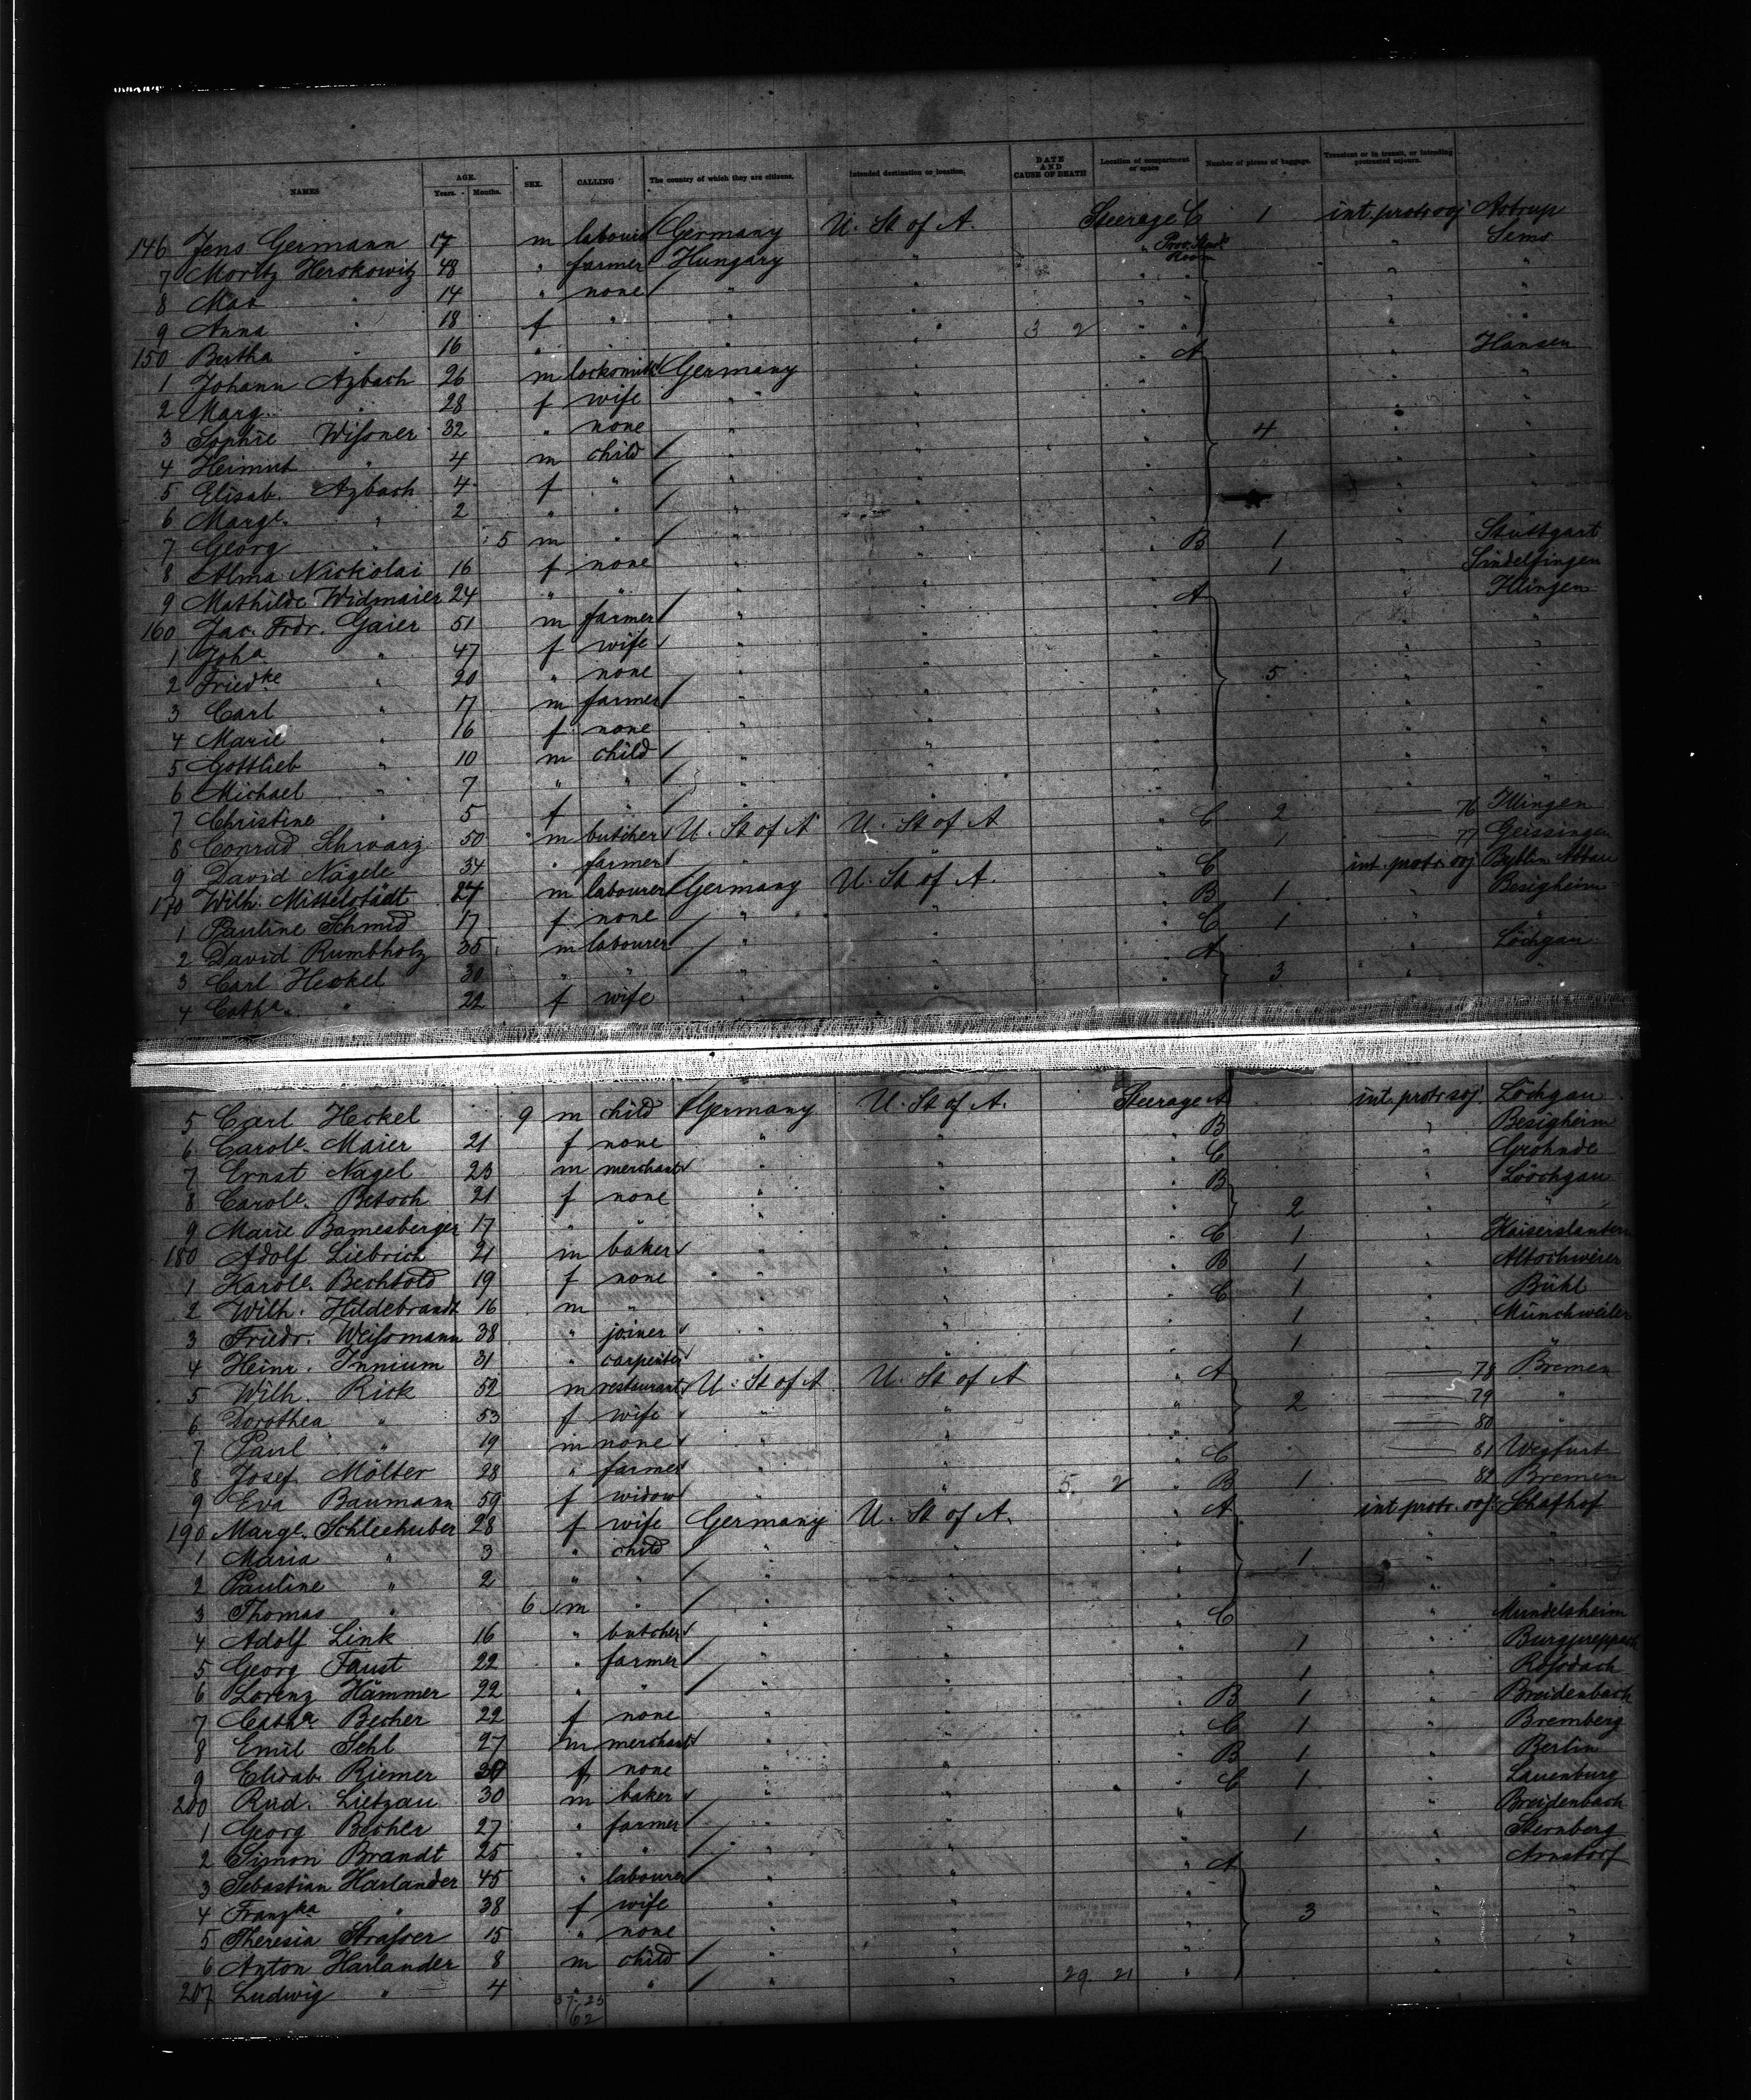 NAMES AGE. Years. Months. SEX. CALLING The country of which they are citizens. Intended destination or location, DATE AND CAUSE OF DEATH Location of compartment or space Number of pieces of baggage. Transient or in transit, or intending protracted sojourn.
146 Jens Germann 17 m labourer Germany U. St of A. Steerage C 1 int. protr soj Astrup
7 Moritz Herskowitz 48 " farmer Hungary " " "
8 Max " 14 " none " " " "
9 Anna " 18 f " " " " "
150 Bertha " 16 " " " " 3 2 " " "
1 Johann Azbach 26 m locksmith Germany " A " Hansen
2 Marg. " 28 f wife " " " " "
3 Sophie Wissner 32 " none " " " " "
4 " 4 m child " " " 4 " "
5 Elisab. Azbach 4 f " " " " " "
6 Marge. " 2 " " " " " " "
7 Georg " 5 m " " " " " "
8 Alma Nickolai 16 f none " " " B 1 " Stuttgart
9 Mathilde Widmaier 24 " " " " " 1 " Sindelfingen
160 Jac. Frdr. Gaier 51 m farmer " " A " Illingen
1 Joha " 47 f wife " " " " "
2 Friedke " 20 " none " " " " "
3 Carl " 17 m farmer " " " 5 " "
4 Marie " 16 f none " " " " "
5 Gottlieb " 10 m child " " " " "
6 Michael " 7 " " " " " " "
7 Christine " 5 f " " " " " "
8 Conrad Schwarz 50 m butcher U. St of A U. St of A " C 2 — 76 Illingen
9 David Nägele 34 " farmer " " " 1 — 77 Geissingen
170 Wilh. Mittelstädt 27 m labourer Germany U. St of A. " C int. protr. soj
1 Pauline Schmid 17 f none " " " B 1 " Besigheim
2 David Rumbholz 35 m labourer " " " C 1 " "
3 Carl Heckel 30 " " " " " A 3 " Löchgau
4 Catha. " 22 f wife " " " " "
5 Carl Heckel 9 m child Germany U. St of A. Steerage A int. protr soj. Löchgau
6 Carole. Maier 21 f none " " " B " Besigheim
7 Ernst Nagel 23 m merchant " " " C " Grohnde
8 Carole. Betsch 21 f none " " " B " Löchgau
9 Marie Bamesberger 17 " " " " " 2 " "
180 Adolf Liebrich 21 m baker " " " C 1 " Kaiserslautern
1 Karole. Bechtold 19 f none " " " B 1 " Altschweier
2 Wilh. Hildebrandt 16 m " " " " C 1 " Bühl
3 Friedr. Weissmann 38 " joiner " " " 1 " Münchweiler
4 Heinr. Innium 31 " carpenter " " " 1 " "
5 Wilh. Rick 52 m restaurant U. St of A U. St of A " A — 78 Bremen
6 Dorothea " 53 f wife " " " 2 — 79 "
7 Paul " 19 m none " " " — 80 "
8 Josef Mölter 28 " farmer " " " C — 81 Wegfurt
9 Eva Baumann 59 f widow " " 5 2 " B 1 — 82 Bremen
190 Marge. Schleehuber 28 f wife Germany U. St of A. " A int. protr. soj. Schafhof
1 Maria " 3 " child " " " 1 " "
2 Pauline " 2 " " " " " " "
3 Thomas " 6 m " " " " " "
4 Adolf Link 16 " butcher " " " C " Mundelsheim
5 Georg Faust 22 " farmer " " " 1 " Burgpreppach
6 Lorenz Hämmer 22 " " " " " 1 " Rossdach
7 Catha Becher 22 f none " " " B 1 " Breidenbach
8 Emil Sehl 27 m merchant " " " C 1 " Bremberg
9 Elisab. Riemer 30 f none " " " B 1 " Berlin
200 Rud. Lietzau 30 m baker " " " C 1 " Lauenburg
1 Georg Becher 27 " farmer " " " " Breidenbach
2 Simon Brandt 25 " " " " " 1 " Sternberg
3 Sebastian Harlander 45 " labourer " " " A " Arnstorf
4 Franzka " 38 f wife " " " " "
5 Theresia Strasser 15 " none " " " 3 " "
6 Anton Harlander 8 m child " " " " "
207 Ludwig " 4 " " " " 29 21 " " "
37. 25
62